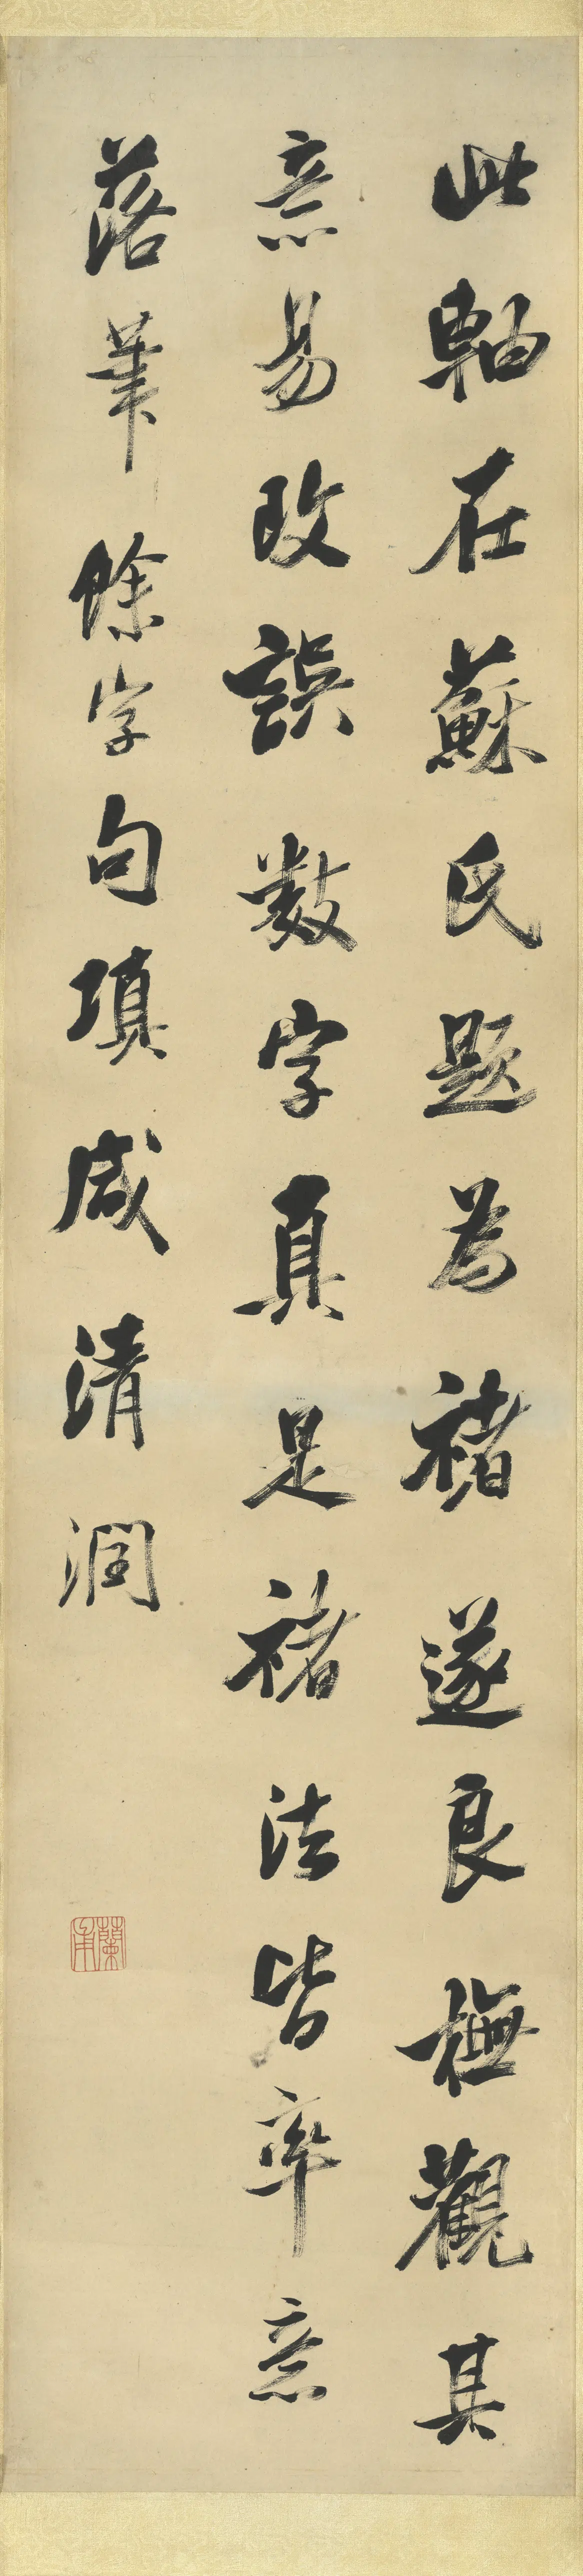 此軸在蘇氏題為褚遂良橅觀其
意易改誤數字真是褚法皆率意
落筆餘字句填咸清潤
蘭甫